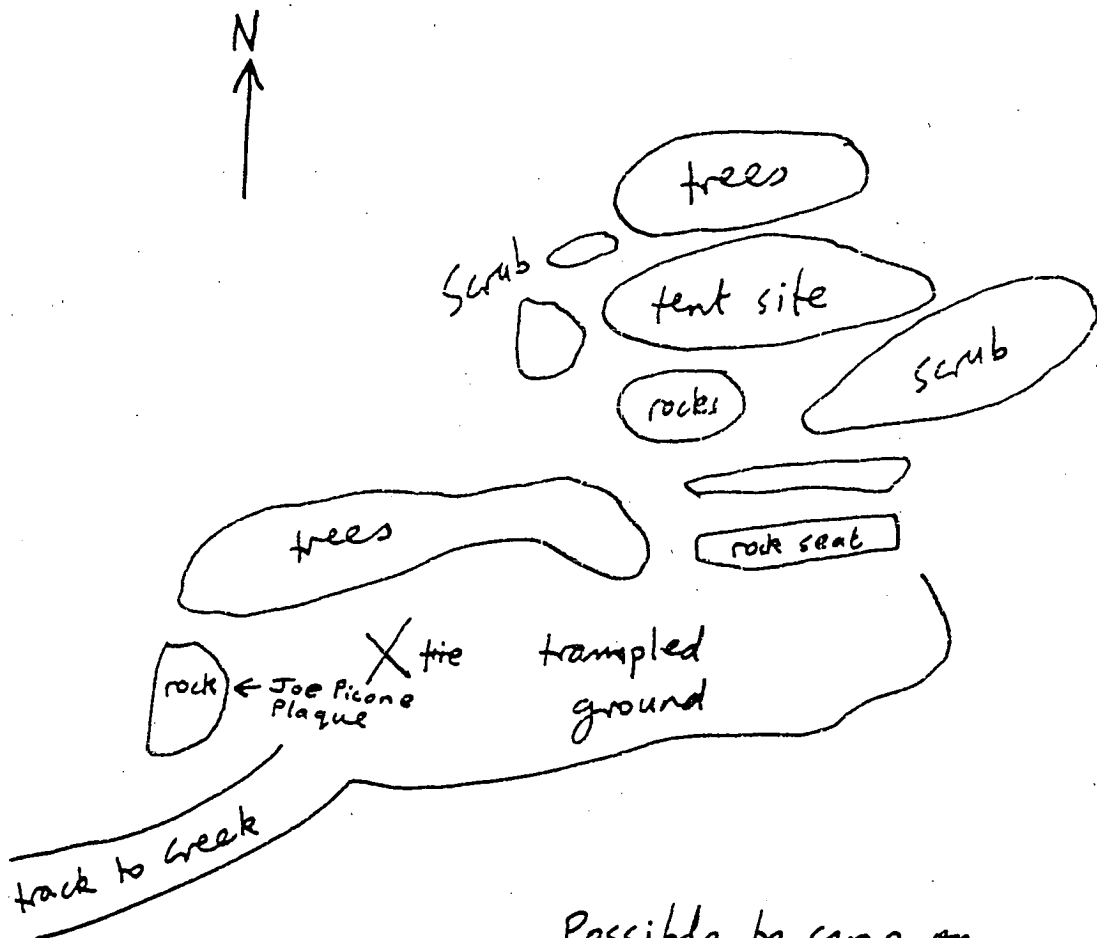 N
trees
scrub
tent site
scrub
rocks
trees
rock seat
fire
trampled
ground
rock
← Joe Picone
Plaque
track to creek
Possible to camp on